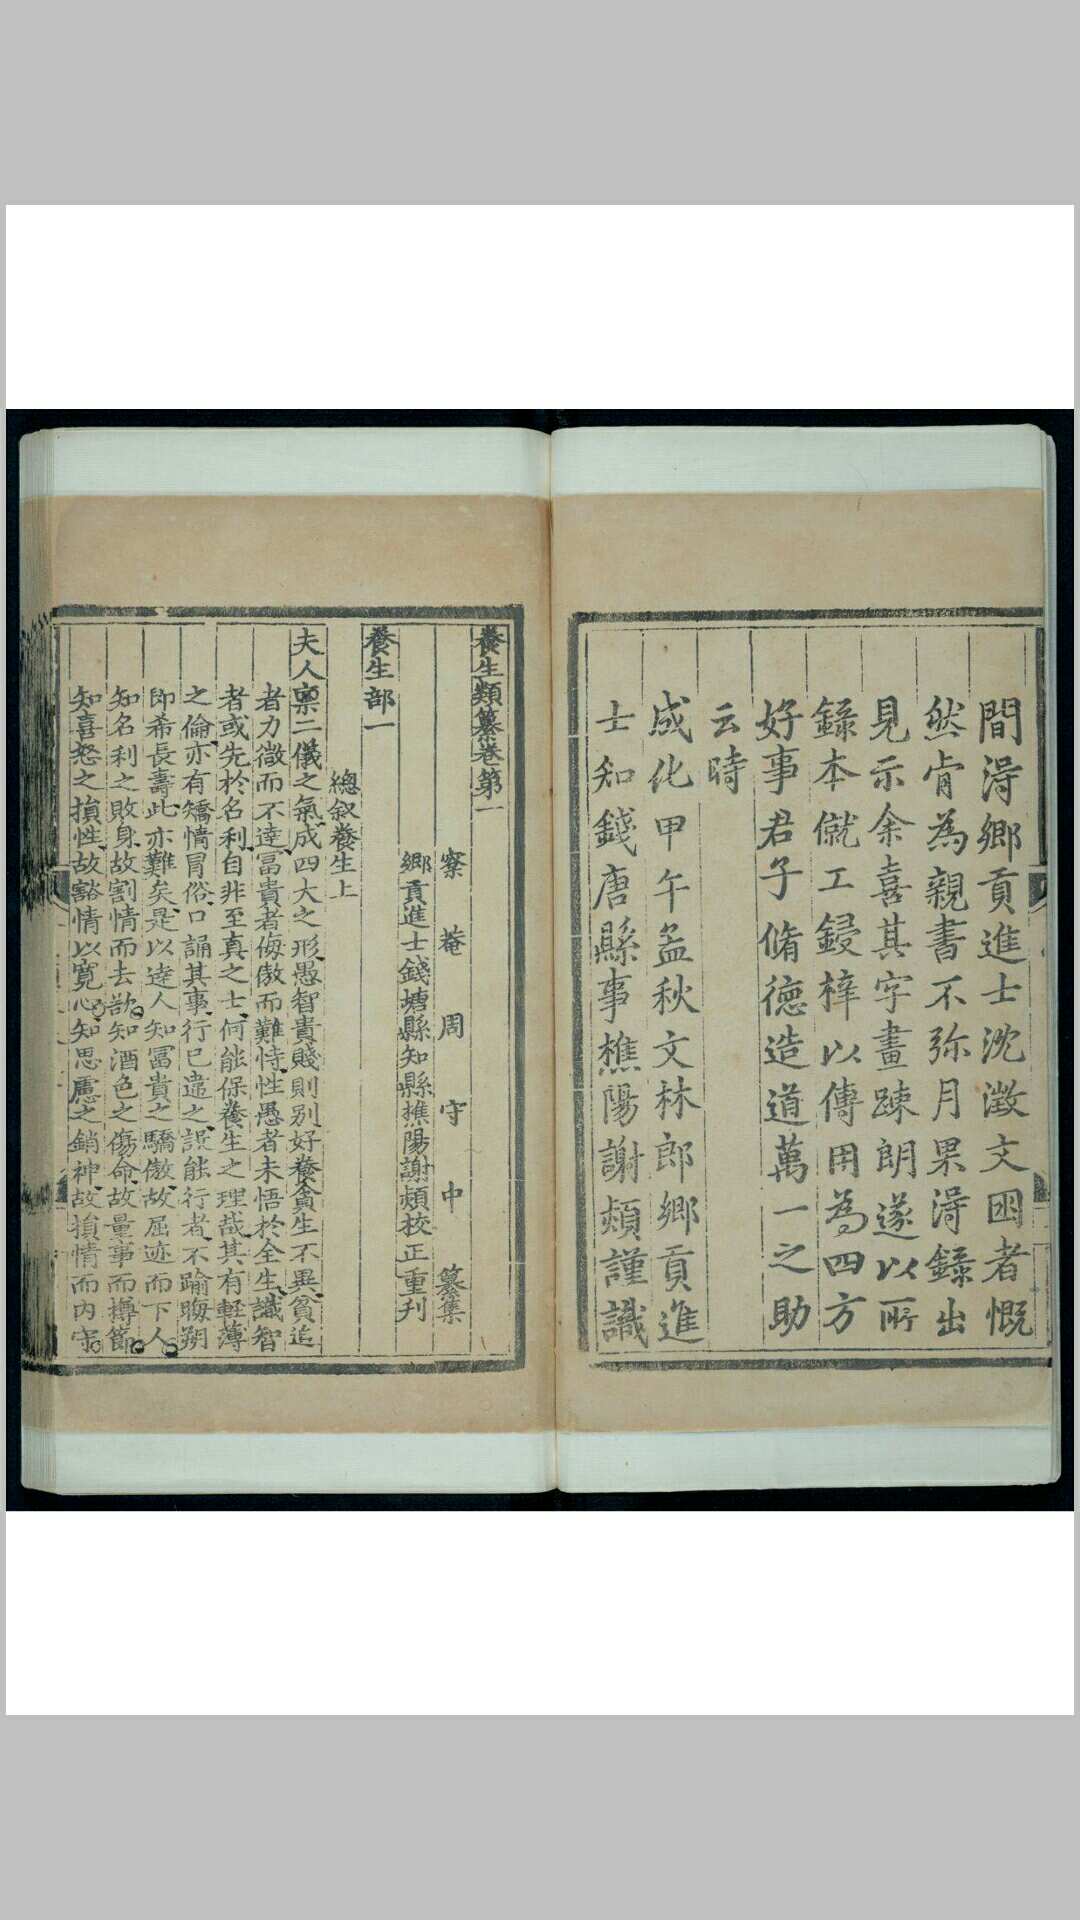 間淂鄉貢進士沈澂文囦者慨
然肯為親書不弥月果淂錄出
見示余喜其字畫踈朗遂以所
錄本僦工鋟梓以傳用為四方
好事君子脩德造道萬一之助
云時
成化甲午孟秋文林郎鄉貢進
士知錢唐縣事樵陽謝熲謹識
養生類纂卷第一
寮菴周守中纂集
鄉貢進士錢塘縣知縣樵陽謝熲校正重刋
養生部一
總叙養生上
夫人禀二儀之氣成四大之形愚智貴賤則别好養貪生不異貧迫
者力微而不達冨貴者侮傲而難恃性愚者未悟於全生識智
者或先於名利自非至真之士何能保養生之理哉其有輕薄
之倫亦有矯情冒俗口誦其事行已違之誤能行者不踰晦朔
即希長壽此亦難矣是以達人知冨貴之驕傲故屈迹而下人
知名利之敗身故割情而去欲知酒色之傷命故量事而撙節
知喜怒之損性故豁情以寬心知思慮之銷神故損情而内守